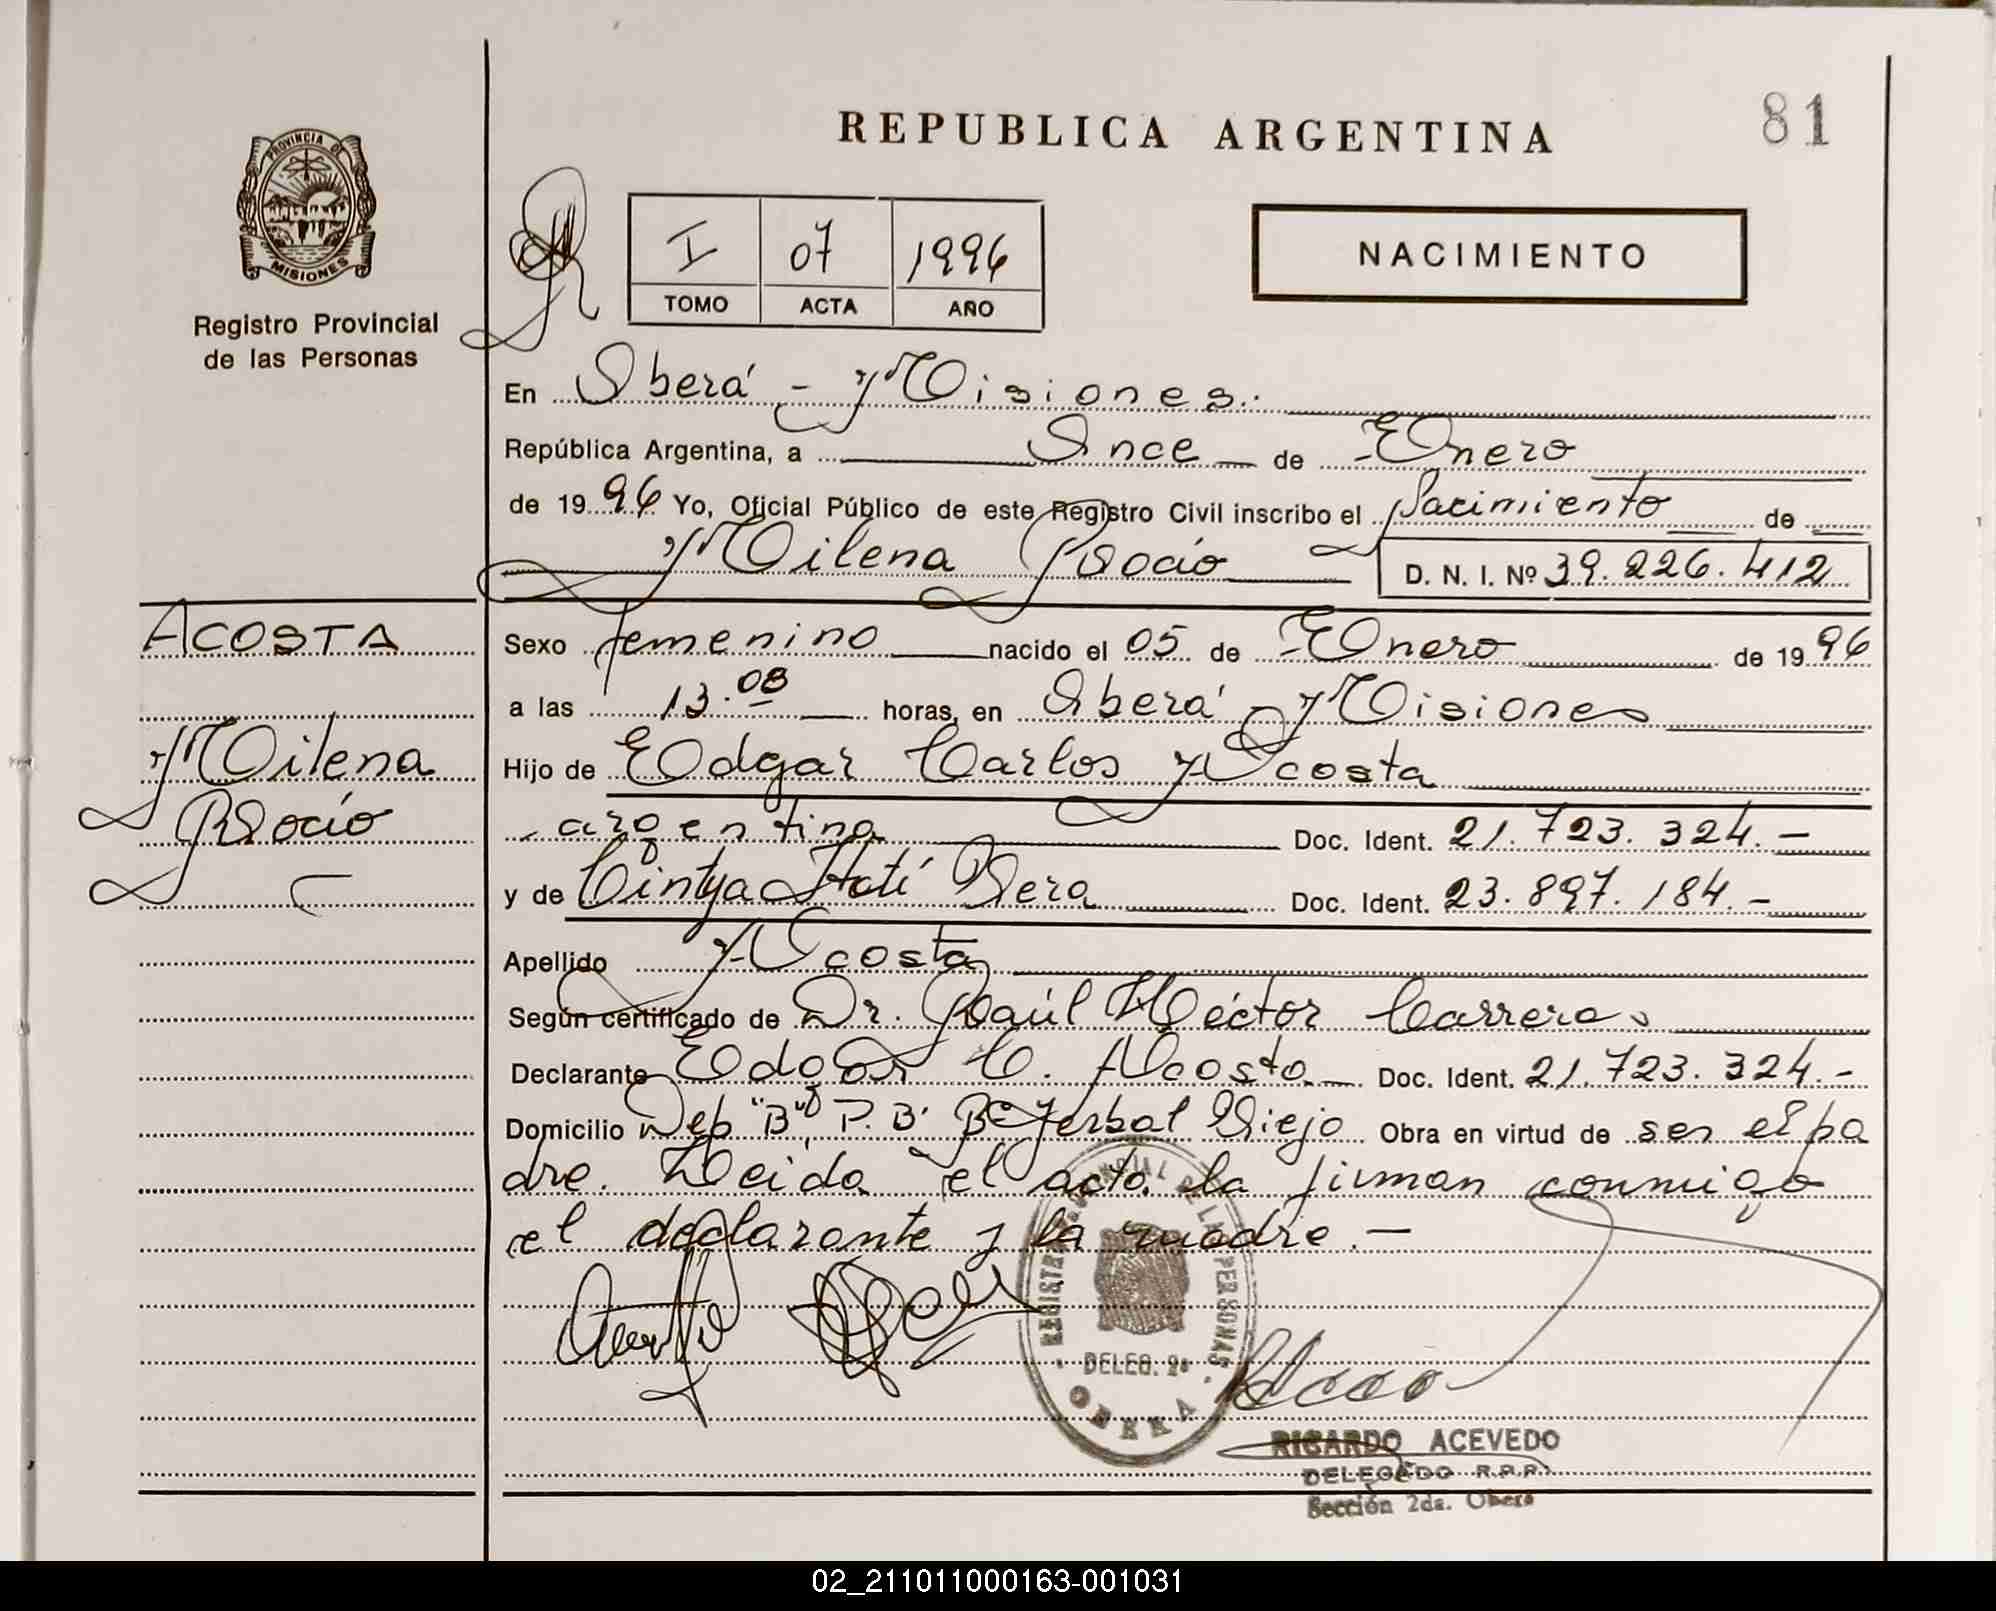 81
REPUBLICA ARGENTINA
PROVINCIA DE
MISIONES
Registro Provincial
de las Personas
I 07 1996
TOMO ACTA AÑO
NACIMIENTO
En Oberá - Misiones.
República Argentina, a Once de Enero
de 1996 Yo, Oficial Público de este Registro Civil inscribo el Nacimiento de
Milena Rocío D. N. I. Nº 39.226.412
ACOSTA
Milena
Rocío
Sexo femenino nacido el 05 de Enero de 1996
a las 13.08 horas, en Oberá - Misiones
Hijo de Edgar Carlos Acosta
argentina Doc. Ident. 21.723.324.-
y de Cintya Itatí Vera Doc. Ident. 23.897.184.-
Apellido Acosta
Según certificado de Dr. Raúl Héctor Carrera
Declarante Edgar C. Acosta Doc. Ident. 21.723.324.-
Domicilio Dep "B", P.B. Bº Yerbal Viejo Obra en virtud de ser el pa
dre. Leida el acta la firman conmigo
el declarante y la madre.-
REGISTRO PROVINCIAL DE LAS PERSONAS
DELEG. 2a
OBERA
RICARDO ACEVEDO
DELEGADO R.P.P.
Sección 2da. Oberá
02_211011000163-001031